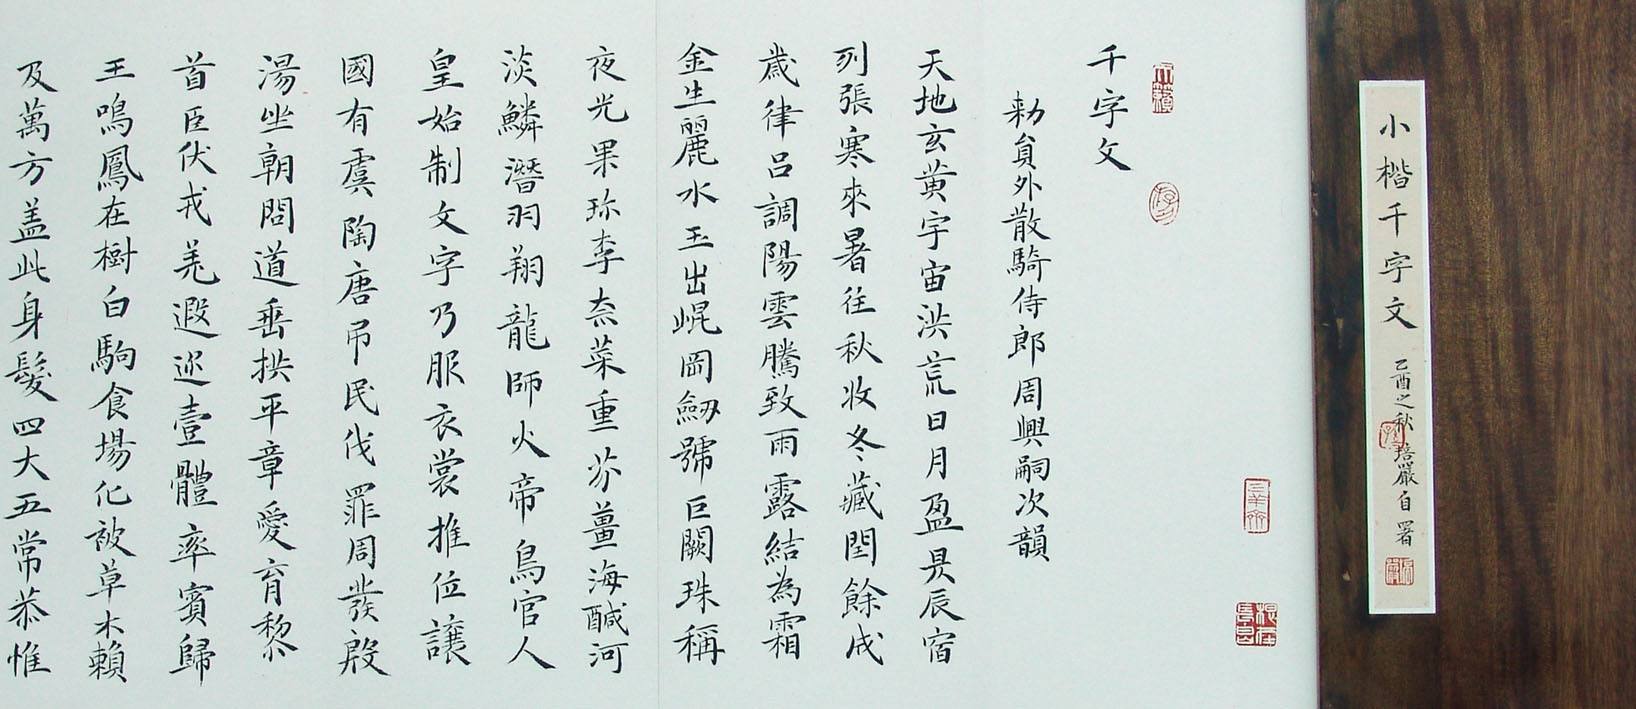 小楷千字文
乙酉之秋 培嚴自署
千字文
勅貟外散騎侍郎周興嗣次韻
天地玄黃宇宙洪荒日月盈昃辰宿
列張寒來暑往秋收冬藏閏餘成
歲律呂調陽雲騰致雨露結為霜
金生麗水玉出崐岡劔號巨闕珠稱
夜光果珎李柰菜重芥薑海醎河
淡鱗潛羽翔龍師火帝鳥官人
皇始制文字乃服衣裳推位讓
國有虞陶唐吊民伐罪周發殷
湯坐朝問道垂拱平章愛育黎
首臣伏戎羌遐迩壹體率賓歸
王鳴鳳在樹白駒食場化被草木賴
及萬方盖此身髮四大五常恭惟